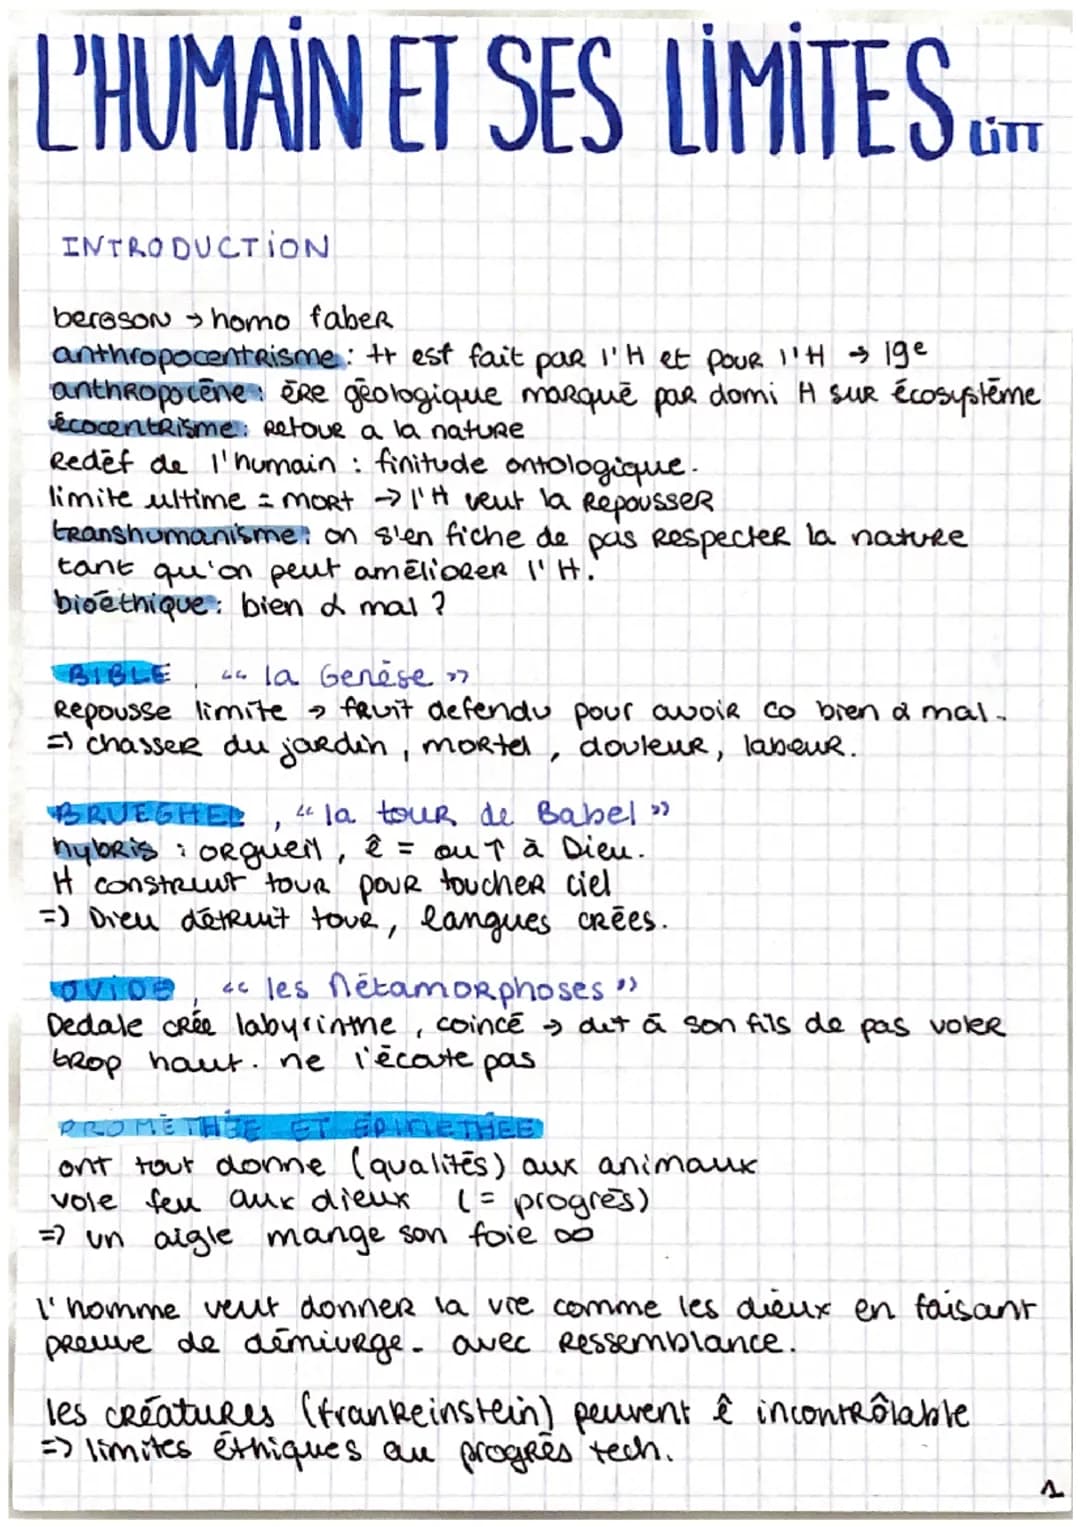 L'HUMAIN ET SES LIMITES LITT
INTRODUCTION
bergson → homo faber
anthropocentrisme : tt est fait par l'H et pour l'H → 19e
anthropocène : ère géologique marqué par domi H sur écosystème
écocentrisme : retour a la nature
Redéf de l'humain : finitude ontologique.
limite ultime = mort → l'H veut la repousser
transhumanisme : on s'en fiche de pas respecter la nature
tant qu'on peut améliorer l'H.
bioéthique : bien & mal ?
BIBLE, "la Genèse"
Repousse limite → fruit defendu pour avoir co bien & mal.
=> chasser du jardin, mortel, douleur, labeur.
BRUEGHEL, "la tour de Babel"
hybris : orgueil, ê = ou ↑ à Dieu.
H construit tour pour toucher ciel
=> Dieu détruit tour, langues crées.
OVIDE, "les Métamorphoses"
Dedale crée labyrinthe, coincé → dit à son fils de pas voler
trop haut. ne l'écoute pas
PROMÉTHÉE ET ÉPIMETHÉE
ont tout donne (qualités) aux animaux
vole feu aux dieux (= progrès)
=> un aigle mange son foie ∞
l'homme veut donner la vie comme les dieux en faisant
preuve de démiurge. avec ressemblance.
les créatures (frankeinstein) peuvent ê incontrôlable
=> limites éthiques au progrès tech.
1